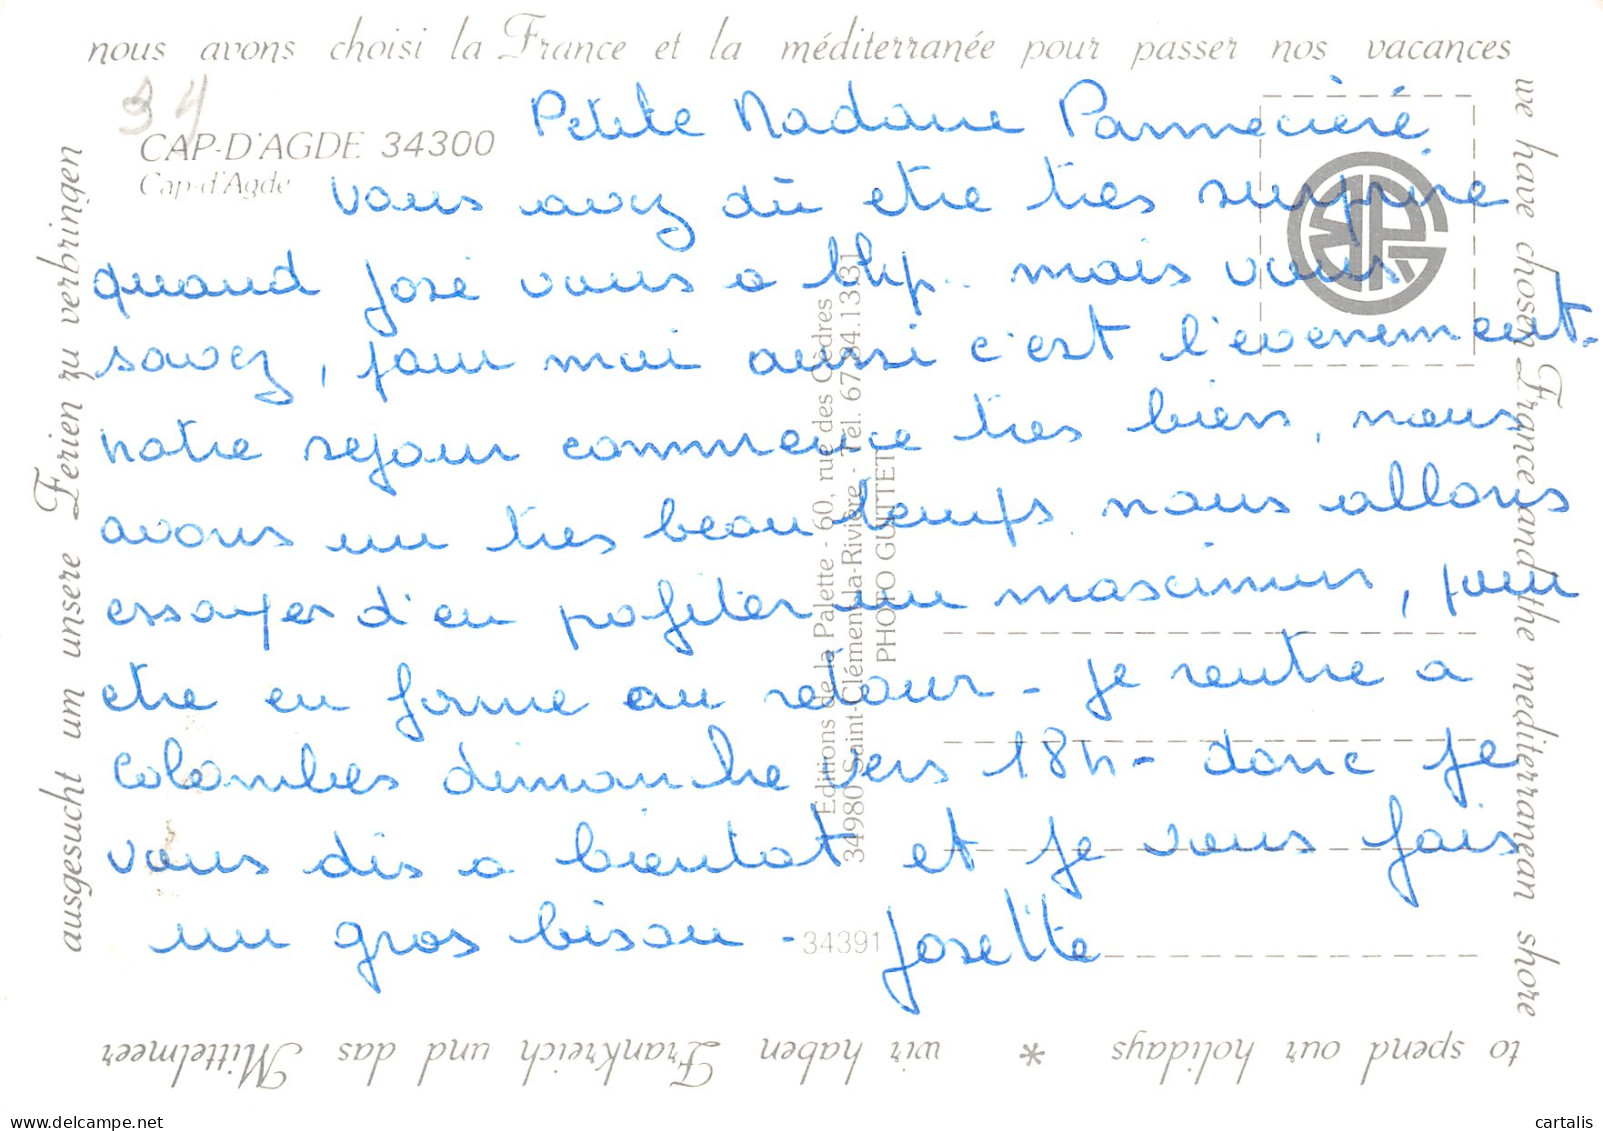 nous avons choisi la France et la méditerranée pour passer nos vacances
34
CAP-D'AGDE 34300
Cap-d'Agde
Petite Madame
vous avez dû etre tres surprise
quand José vous a tlhp.. mais vous
savez, pour moi aussi c'est l'evenement.
notre sejour commence tres bien, nous
avons un tres beau temps nous allons
essayer d'en profiter un maximum, pour
etre en forme au retour - Je rentre a
Colombes dimanche vers 18h - donc Je
vous dis a bientot et Je vous fais
un gros bisou - Josette
we have chosen France and the mediterranean shore
to spend our holidays * wir haben Frankreich und das Mittelmeer
ausgesucht um unsere Ferien zu verbringen
Editions de la Palette - 60, rue des Cèdres
34980 Saint-Clément-la-Rivière - Tél. 67.84.13.31
PHOTO GUITTET
34391
https://www.delcampe.net
cartalis